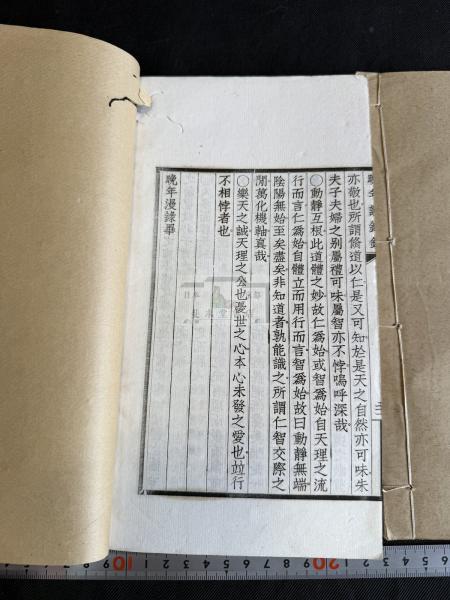 亦敬也所謂脩道以仁是又可知於是天之自然亦可味朱
夫子夫婦之別屬禮可味屬智亦不悖嗚呼深哉
○動靜互根此道體之妙故仁爲始或智爲始自天理之流
行而言仁爲始自體立而用行而言智爲始故曰動靜無端
陰陽無始至矣盡矣非知道者孰能識之所謂仁智交際之
間萬化機軸眞哉
○樂天之誠天理之公也憂世之心本心未發之愛也竝行
不相悖者也
晩年漫錄畢